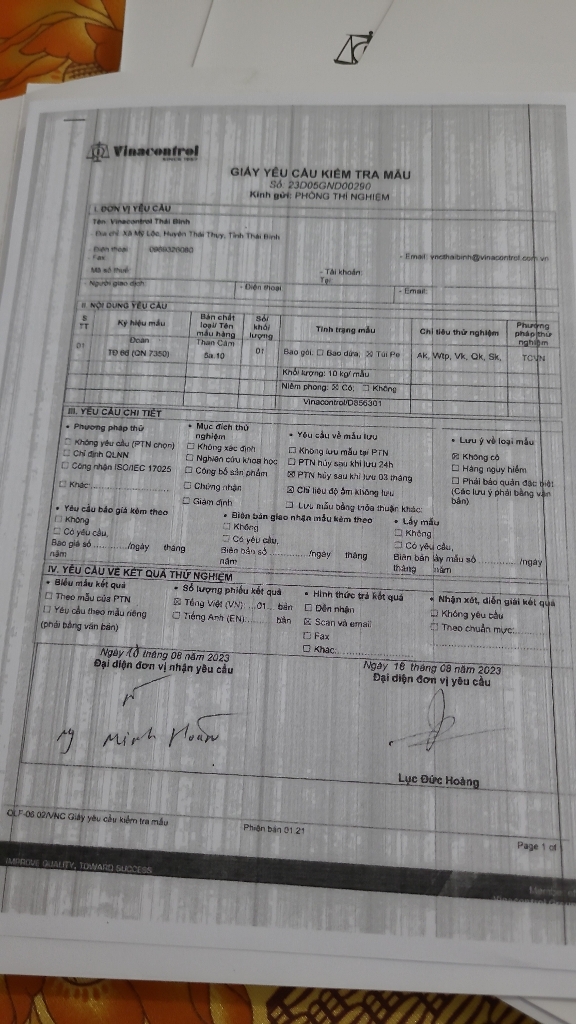 Vinacontrol
GIẤY YÊU CẦU KIỂM TRA MẪU
Số: 23D05GND00290
Kính gửi: PHÒNG THÍ NGHIỆM
I. ĐƠN VỊ YÊU CẦU
Tên: Vinacontrol Thái Bình
- Địa chỉ: Xã Mỹ Lộc, Huyện Thái Thụy, Tỉnh Thái Bình
- Điện thoại
- Email: vncthaibinh@vinacontrol.com.vn
- Fax:
- Tài khoản:
Mã số thuế:
Tại:
- Người giao dịch:
- Điện thoại
- Email:
II. NỘI DUNG YÊU CẦU
S TT
Ký hiệu mẫu
Bản chất loại/ Tên mẫu hàng
Số/ khối lượng
Tình trạng mẫu
Chỉ tiêu thử nghiệm
Phương pháp thử nghiệm
01
Đoàn TĐ 6d (QN 7350)
Than Cám 5a.10
01
Bao gói: ☐ Bao dứa; ☒ Túi Pe
Ak, Wtp, Vk, Qk, Sk,
TCVN
Khối lượng: 10 kg/ mẫu
Niêm phong: ☒ Có; ☐ Không
Vinacontrol/D856301
III. YÊU CẦU CHI TIẾT
• Phương pháp thử
☐ Không yêu cầu (PTN chọn)
☐ Chỉ định QLNN
☐ Công nhận ISO/IEC 17025
☐ Khác:
• Mục đích thử nghiệm
☐ Không xác định
☐ Nghiên cứu khoa học
☐ Công bố sản phẩm
☐ Chứng nhận
☐ Giám định
• Yêu cầu về mẫu lưu
☐ Không lưu mẫu tại PTN
☐ PTN hủy sau khi lưu 24h
☒ PTN hủy sau khi lưu 03 tháng
☒ Chỉ tiêu độ ẩm không lưu
☐ Lưu mẫu bằng thỏa thuận khác:
• Lưu ý về loại mẫu
☒ Không có
☐ Hàng nguy hiểm
☐ Phải bảo quản đặc biệt
(Các lưu ý phải bằng văn bản)
• Yêu cầu báo giá kèm theo
☐ Không
☐ Có yêu cầu,
Báo giá số ............/ngày tháng năm
• Biên bản giao nhận mẫu kèm theo
☐ Không
☐ Có yêu cầu,
Biên bản số ............/ngày tháng năm
• Lấy mẫu
☐ Không
☐ Có yêu cầu,
Biên bản lấy mẫu số ............/ngày tháng năm
IV. YÊU CẦU VỀ KẾT QUẢ THỬ NGHIỆM
• Biểu mẫu kết quả
☐ Theo mẫu của PTN
☐ Yêu cầu theo mẫu riêng
(phải bằng văn bản)
• Số lượng phiếu kết quả
☒ Tiếng Việt (VN) ....01.... bản
☐ Tiếng Anh (EN)........... bản
• Hình thức trả kết quả
☐ Đến nhận
☒ Scan và email
☐ Fax
☐ Khác:
• Nhận xét, diễn giải kết quả
☐ Không yêu cầu
☐ Theo chuẩn mực:
tháng 08 năm 2023
Đại diện đơn vị nhận yêu cầu
Ngày 16 tháng 08 năm 2023
Đại diện đơn vị yêu cầu
Minh Hoàn
Lục Đức Hoàng
QLF-06.02/VNC Giấy yêu cầu kiểm tra mẫu
Phiên bản 01.21
Page 1 of
IMPROVE QUALITY, TOWARD SUCCESS